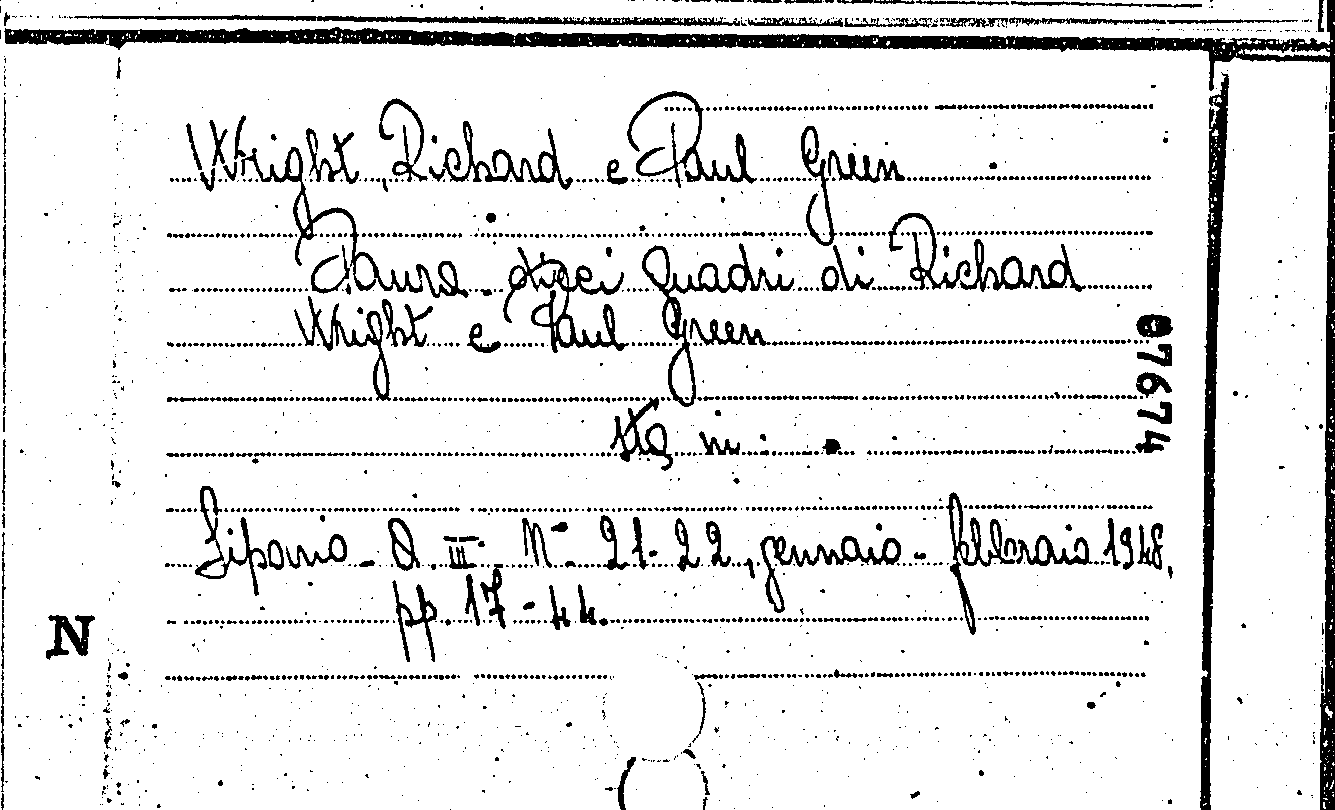 Wright, Richard e Paul Green
Paura. dieci quadri di Richard
Wright e Paul Green
sta in:
Sipario - A. III - N° 21-22, gennaio - febbraio 1948,
pp. 17-44.
N
07674